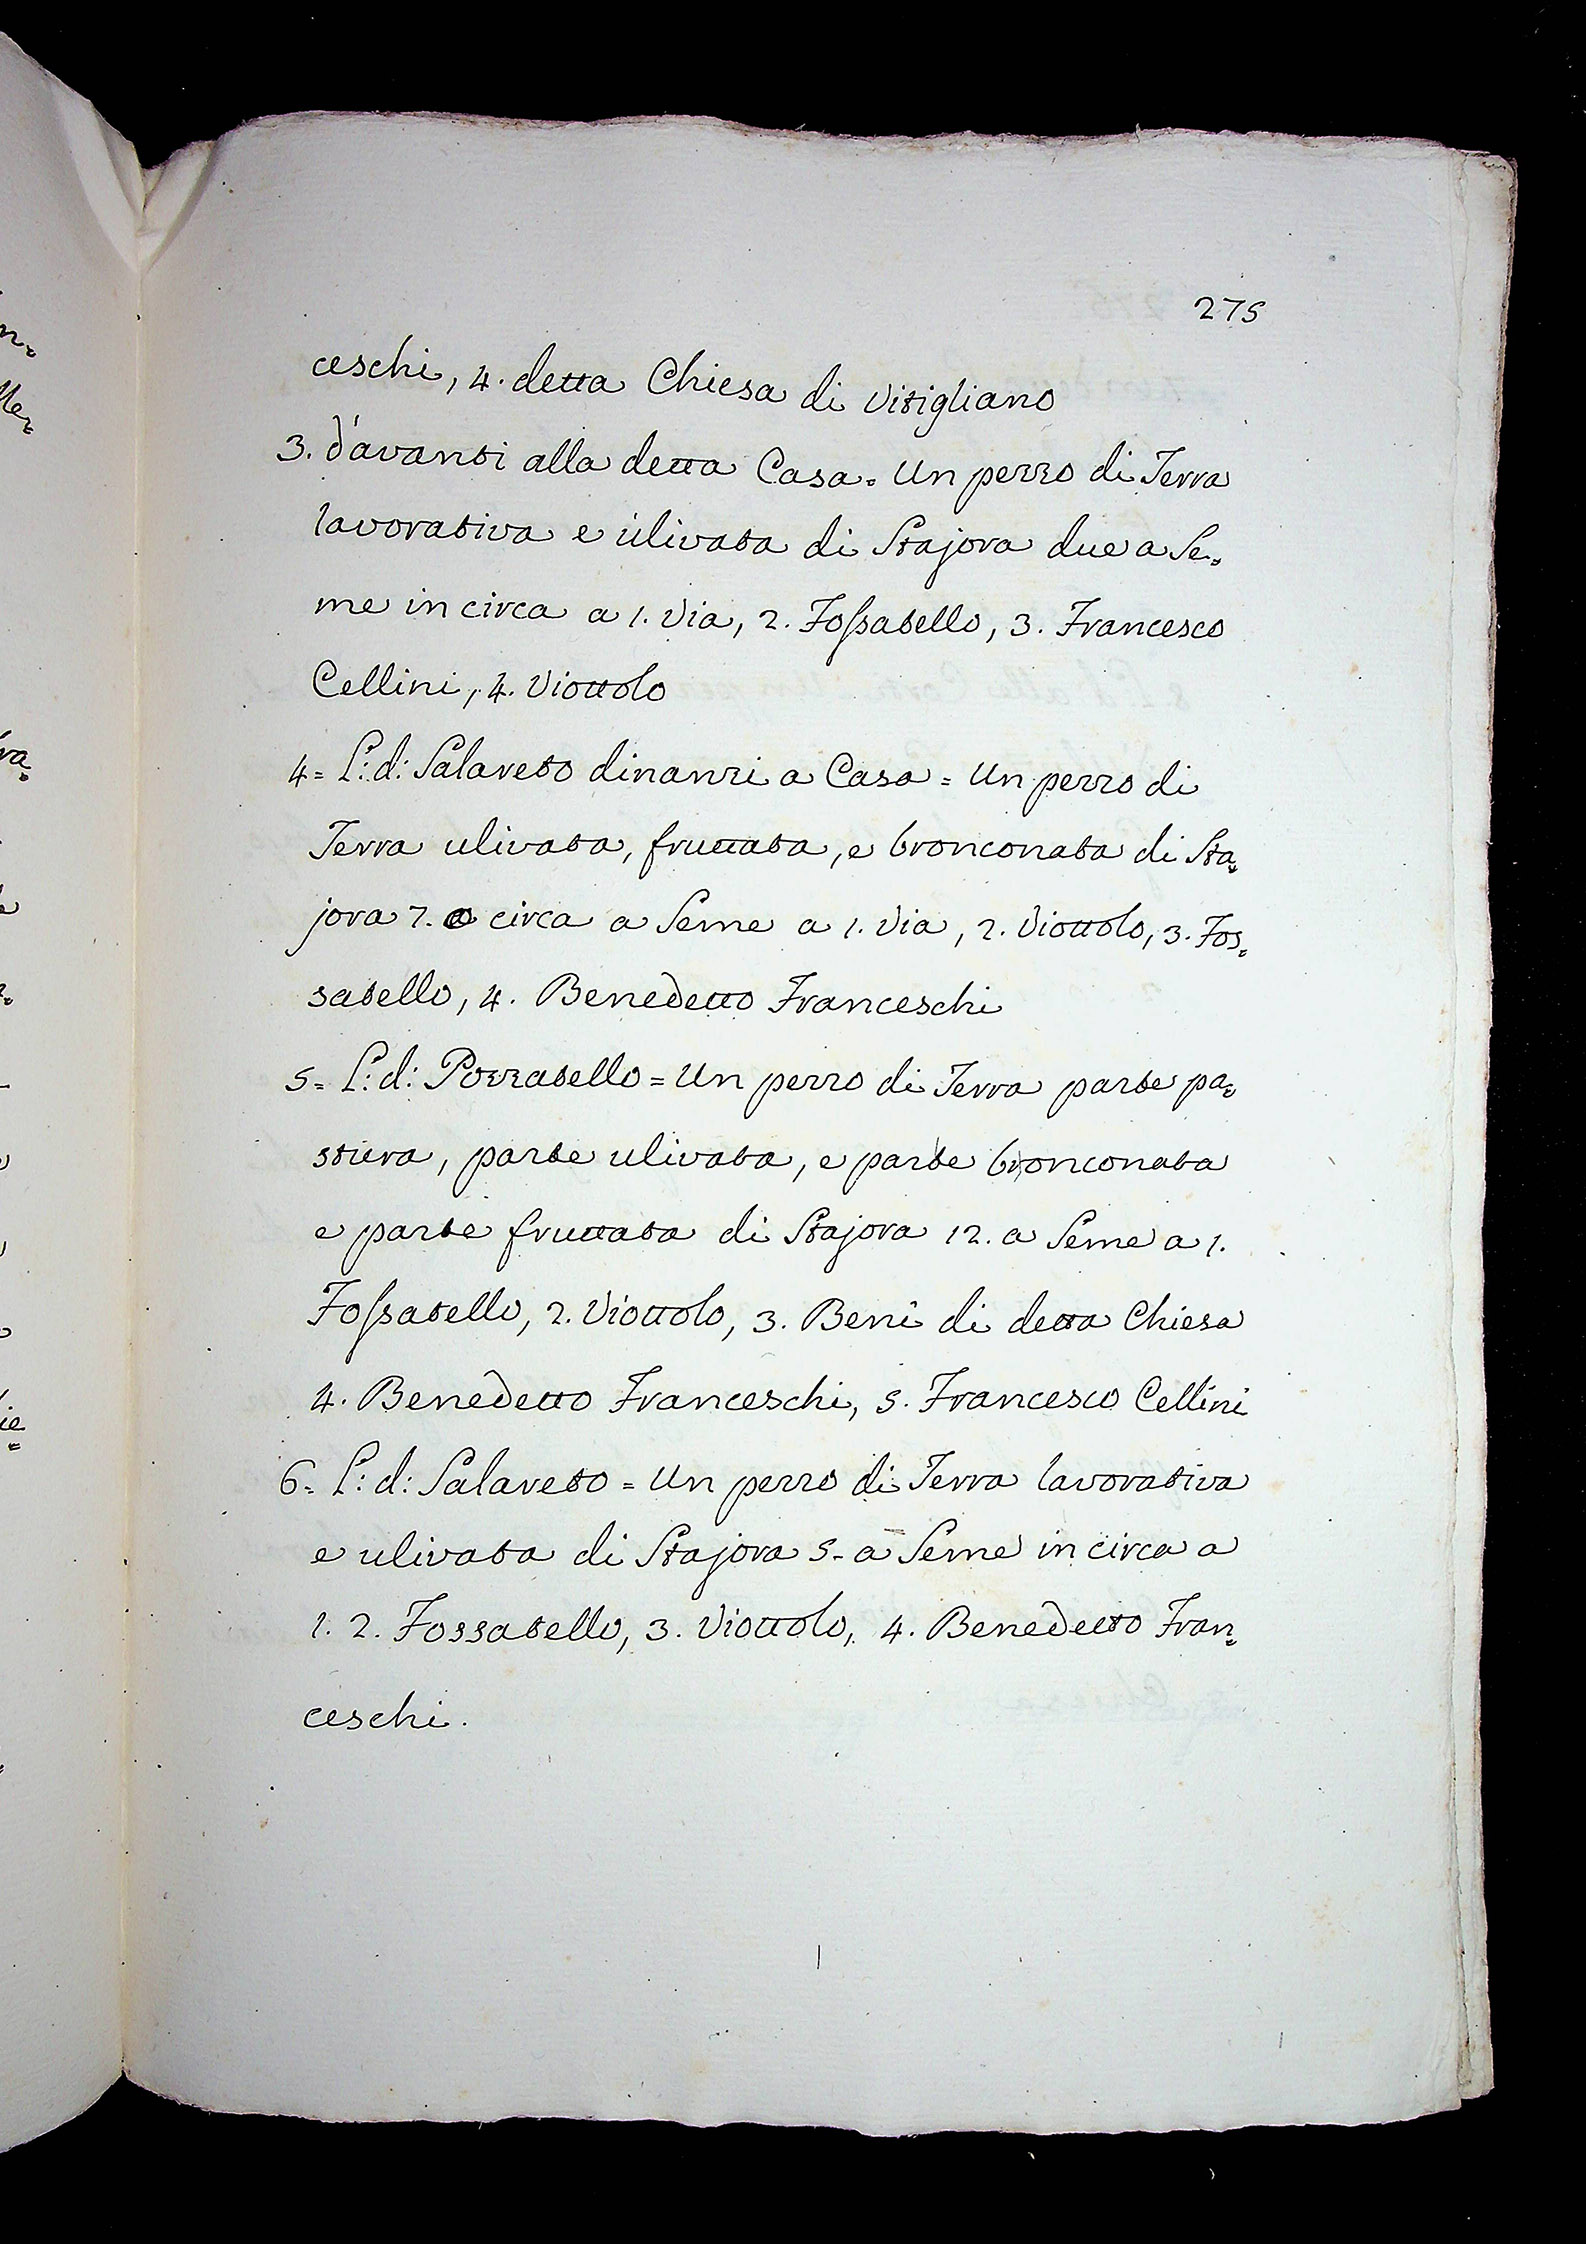 275
ceschi, 4. detta Chiesa di Vitigliano
3. d'avanti alla detta Casa = Un pezzo di Terra
lavorativa e ulivata di Stajora due a Se=
me in circa a 1. Via, 2. Fossatello, 3. Francesco
Cellini, 4. Viottolo
4= L: d: Salareto dinanzi a Casa = Un pezzo di
Terra ulivata, fruttata, e bronconata di Sta=
jora 7. circa a Seme a 1. Via, 2. Viottolo, 3. Fos=
satello, 4. Benedetto Franceschi
5= L: d: Pozzatello = Un pezzo di Terra parte pa=
stura, parte ulivata, e parte bronconata
e parte fruttata di Stajora 12. a Seme a 1.
Fossatello, 2. Viottolo, 3. Beni di detta Chiesa
4. Benedetto Franceschi, 5. Francesco Cellini
6= L: d: Salareto = Un pezzo di Terra lavorativa
e ulivata di Stajora 5- a Seme in circa a
1. 2. Fossatello, 3. Viottolo, 4. Benedetto Fran=
ceschi.